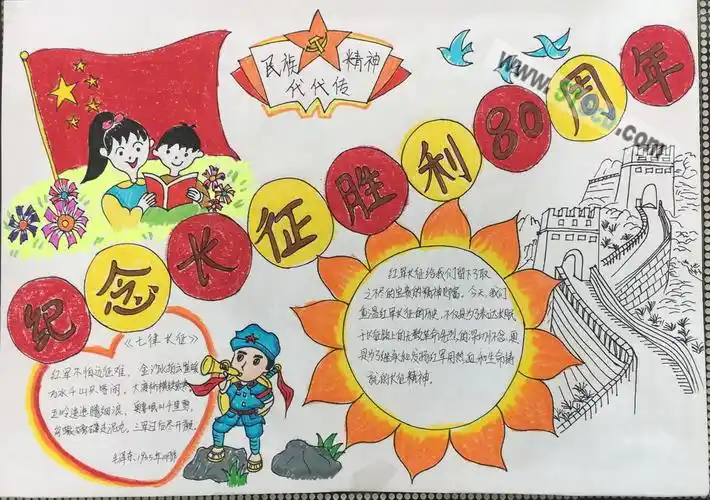 民族精神
代代传
纪念长征胜利80周年
《七律 长征》
红军不怕远征难,
万水千山只等闲,
五岭逶迤腾细浪,
乌蒙磅礴走泥丸,
金沙水拍云崖暖
大渡桥横铁索寒
更喜岷山千里雪,
三军过后尽开颜.
毛泽东
红军长征给我们留下了取
之不尽的宝贵的精神财富。今天,我们
重温红军长征的历史,不仅是为了表达长眠
于长征路上的无数革命先烈的深切怀念,更
是为了继承和发扬红军用热血和生命铸
就的长征精神。